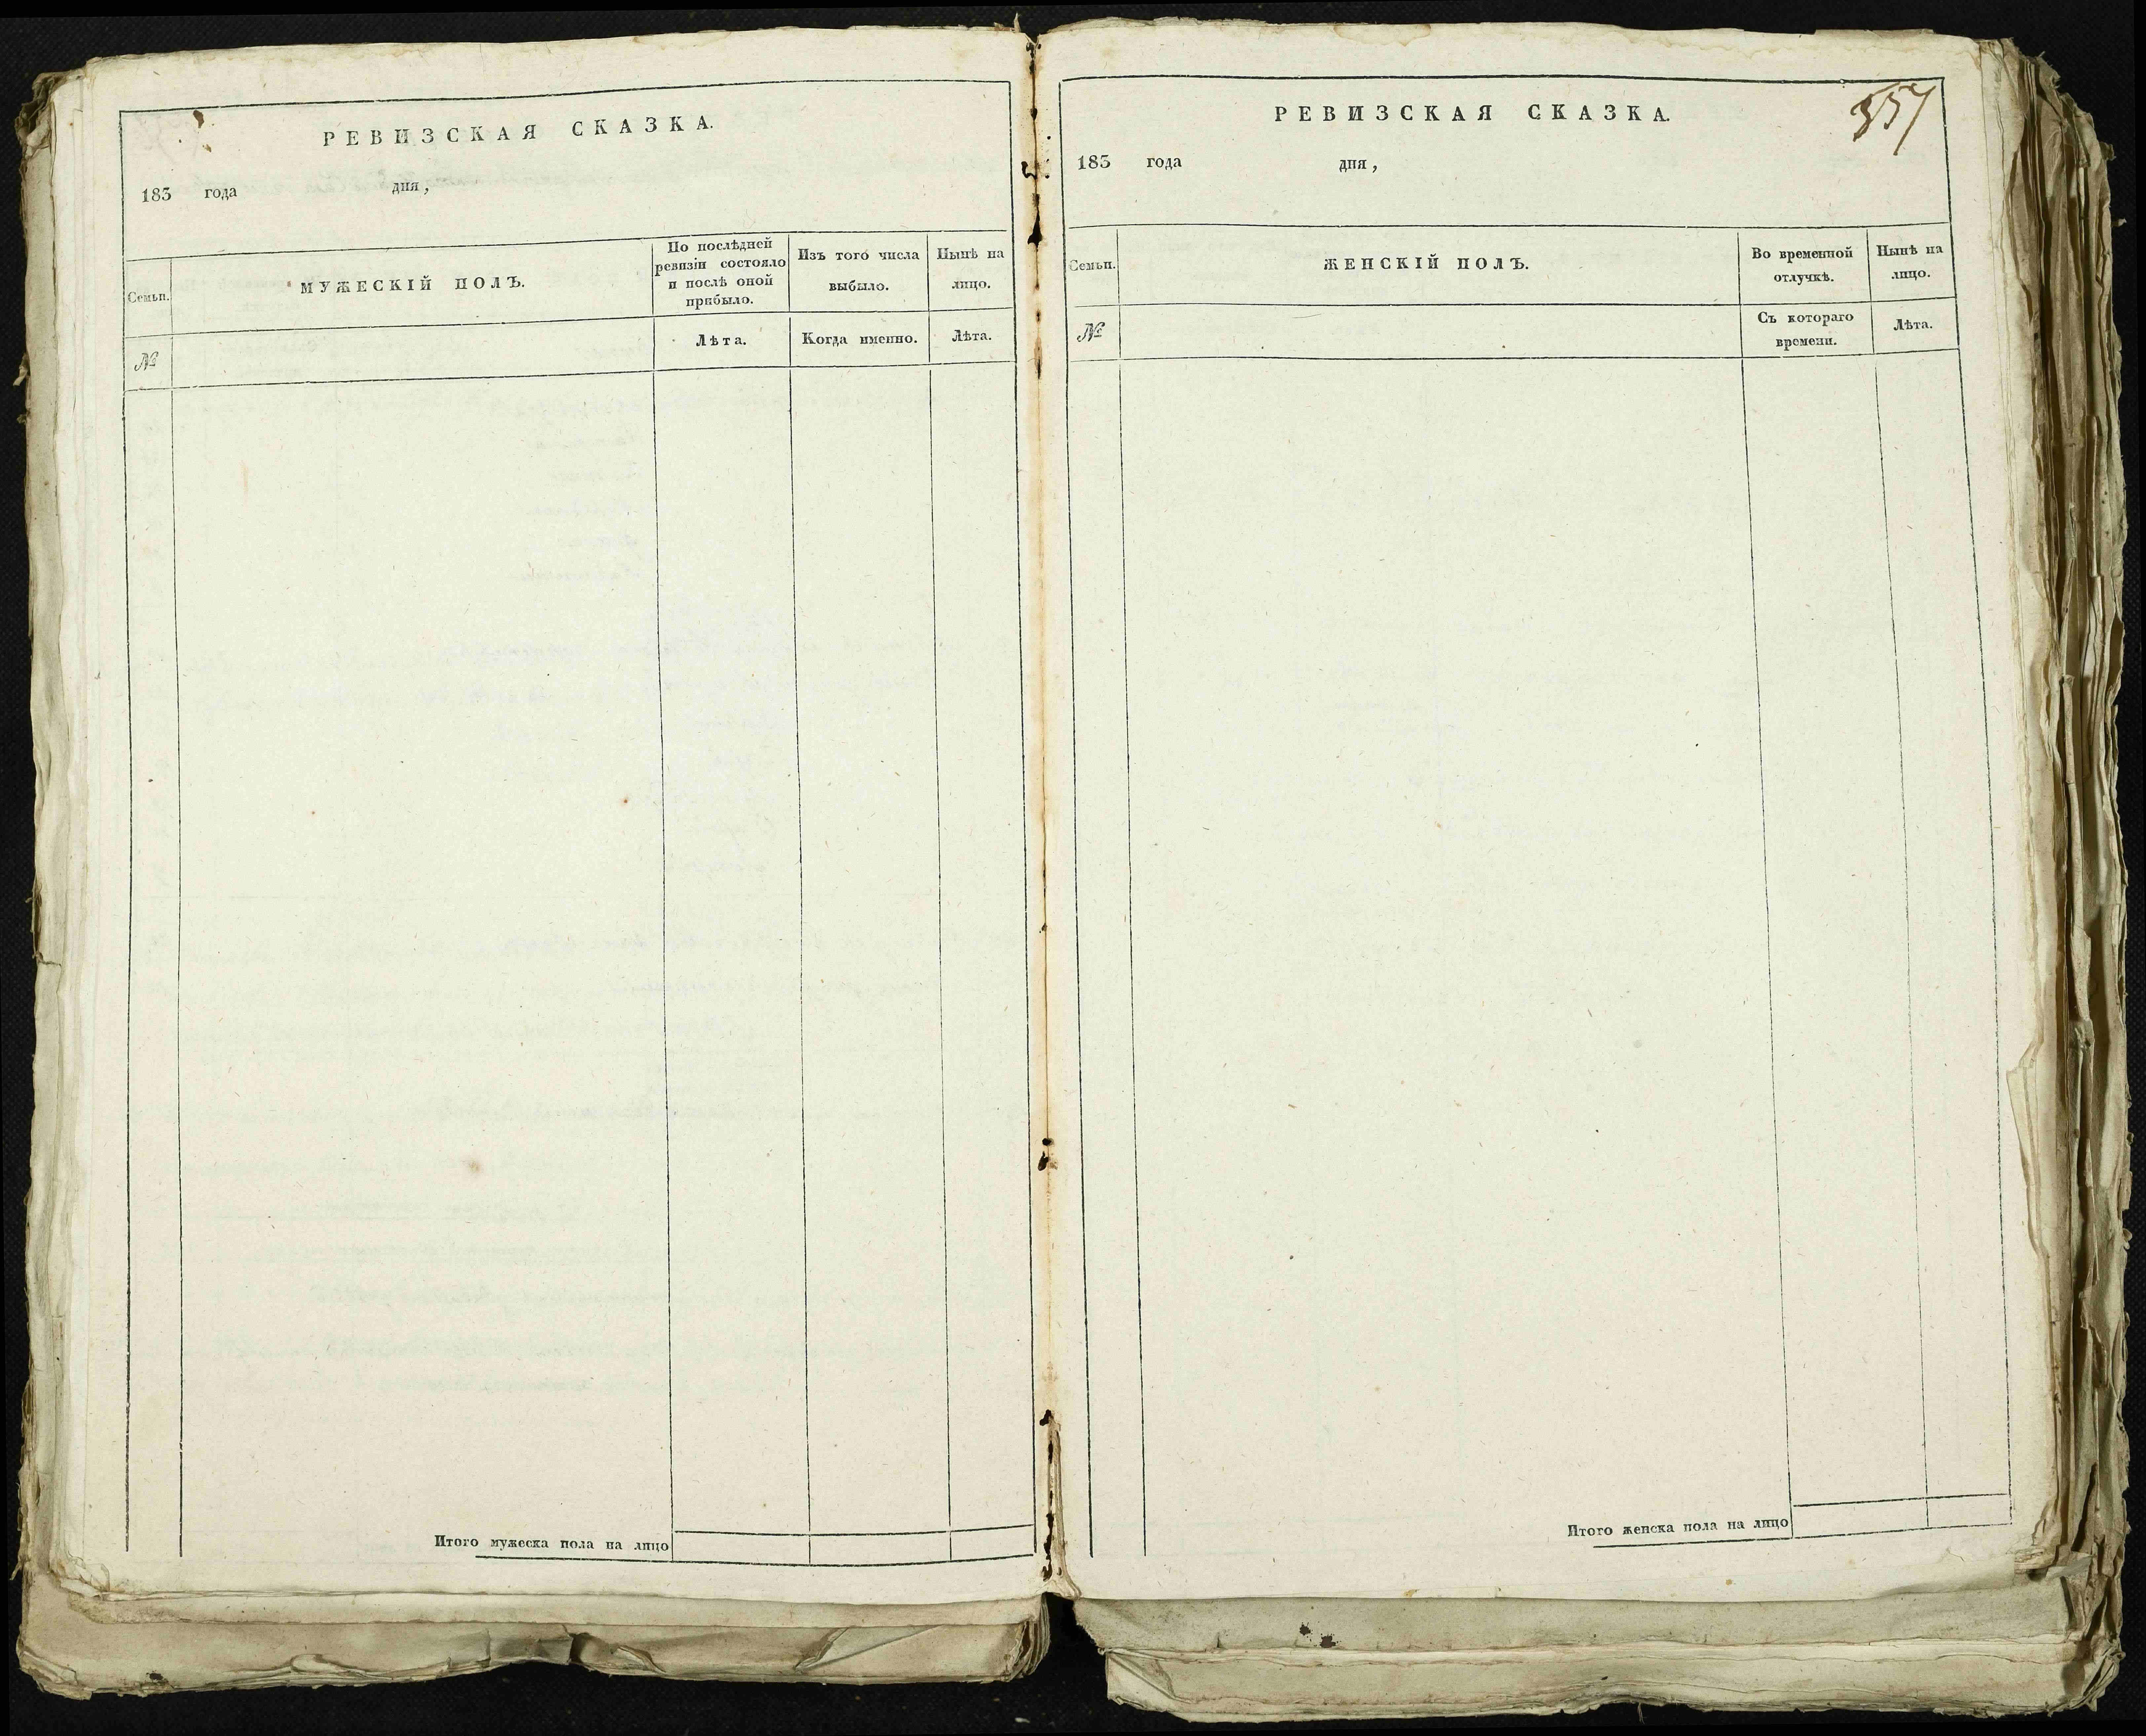 РЕВИЗСКАЯ СКАЗКА.
183 года дня,
Семьи.
МУЖЕСКІЙ ПОЛЪ.
По послѣдней
ревизіи состояло
и послѣ оной
прибыло.
Изъ того числа
выбыло.
Нынѣ на
лицо.
№
Лѣта.
Когда именно.
Лѣта.
Итого мужеска пола на лицо
357
РЕВИЗСКАЯ СКАЗКА.
183 года дня,
Семьи.
ЖЕНСКІЙ ПОЛЪ.
Во временной
отлучкѣ.
Нынѣ на
лицо.
№
Съ котораго
времени.
Лѣта.
Итого женска пола на лицо